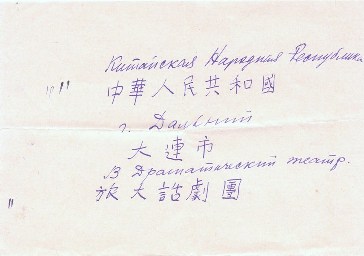 Китайская Народная Республика
中華人民共和國
г. Дальний
大連市
В Драматический театр.
旅大話劇團